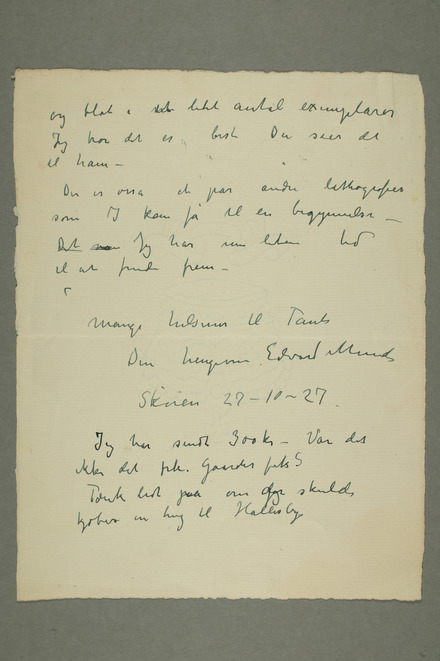 og blot i et litet antal exemplarer
Jeg tror det er best Du sier det
til ham –
Der er også et par andre lithografier
som I kan få til en begynnelse –
Det som Jeg har nu liten tid
til at finde frem –
Mange hilsener til Tante
Din hengivne Edvard Munch
Skøien 27–10–27.
Jeg har sendt 300 kr – Var det
ikke det frk. Gaarder fik?
Tænk lidt paa om jeg skulde
kjøbe en ting til Hallesby